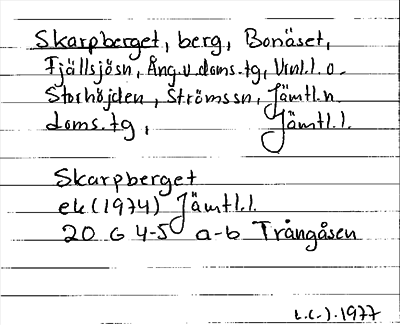 Skarpberget, berg, Bonäset,
Fjällsjösn, Ång.v.doms.tg, Vnl.l. o.
Storhöjden, Strömssn, Jämtl.n.
doms.tg, Jämtl.l.
Skarpberget
ek (1974) Jämtl.l.
20 G 4-5 a-b Trångåsen
1977